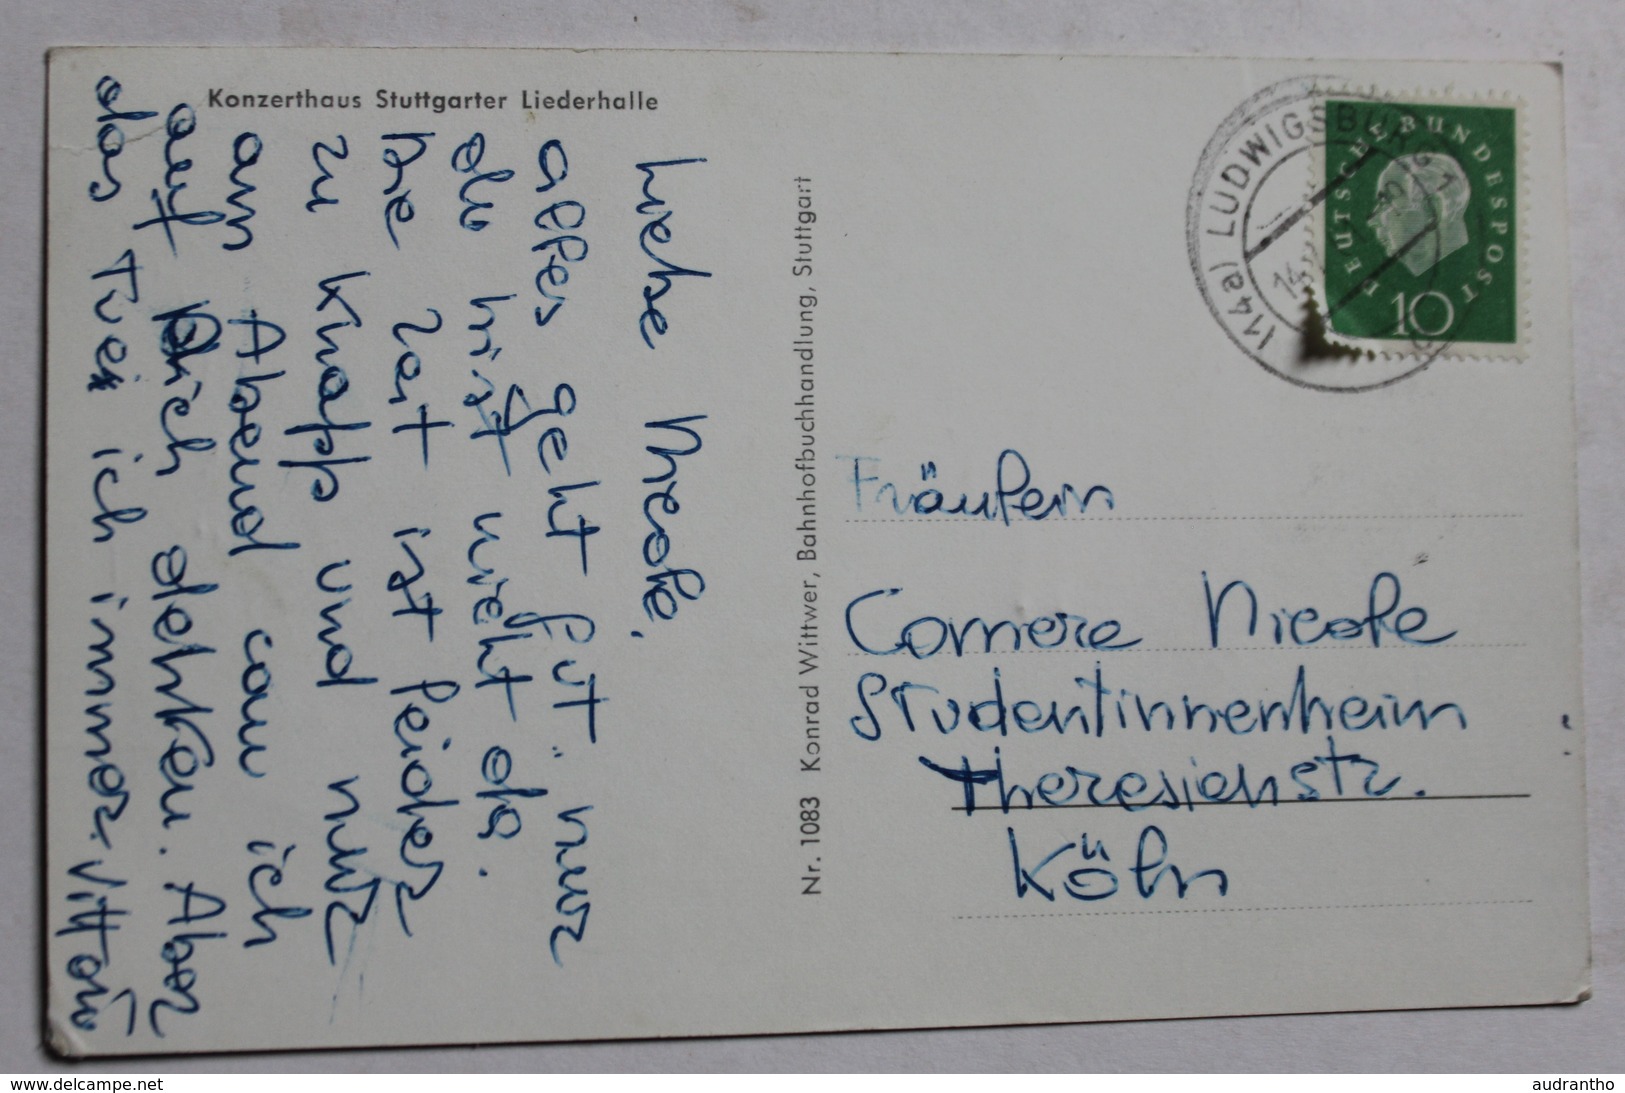 Konzerthaus Stuttgarter Liederhalle
Liebe Nicole,
alles geht gut, nur
du bist nicht da.
Die Zeit ist leider
zu knapp und nur
am Abend can ich
auf Dich denken. Aber
das Tuei ich immer. Vittorio
Nr. 1083 Konrad Wittwer, Bahnhofbuchhandlung, Stuttgart
(14a) LUDWIGSBURG 1
14.
DEUTSCHE BUNDESPOST
10
Fräulein
Nicole
Studentinnenheim
Theresienstr.
Köln
www.delcampe.net
audrantho